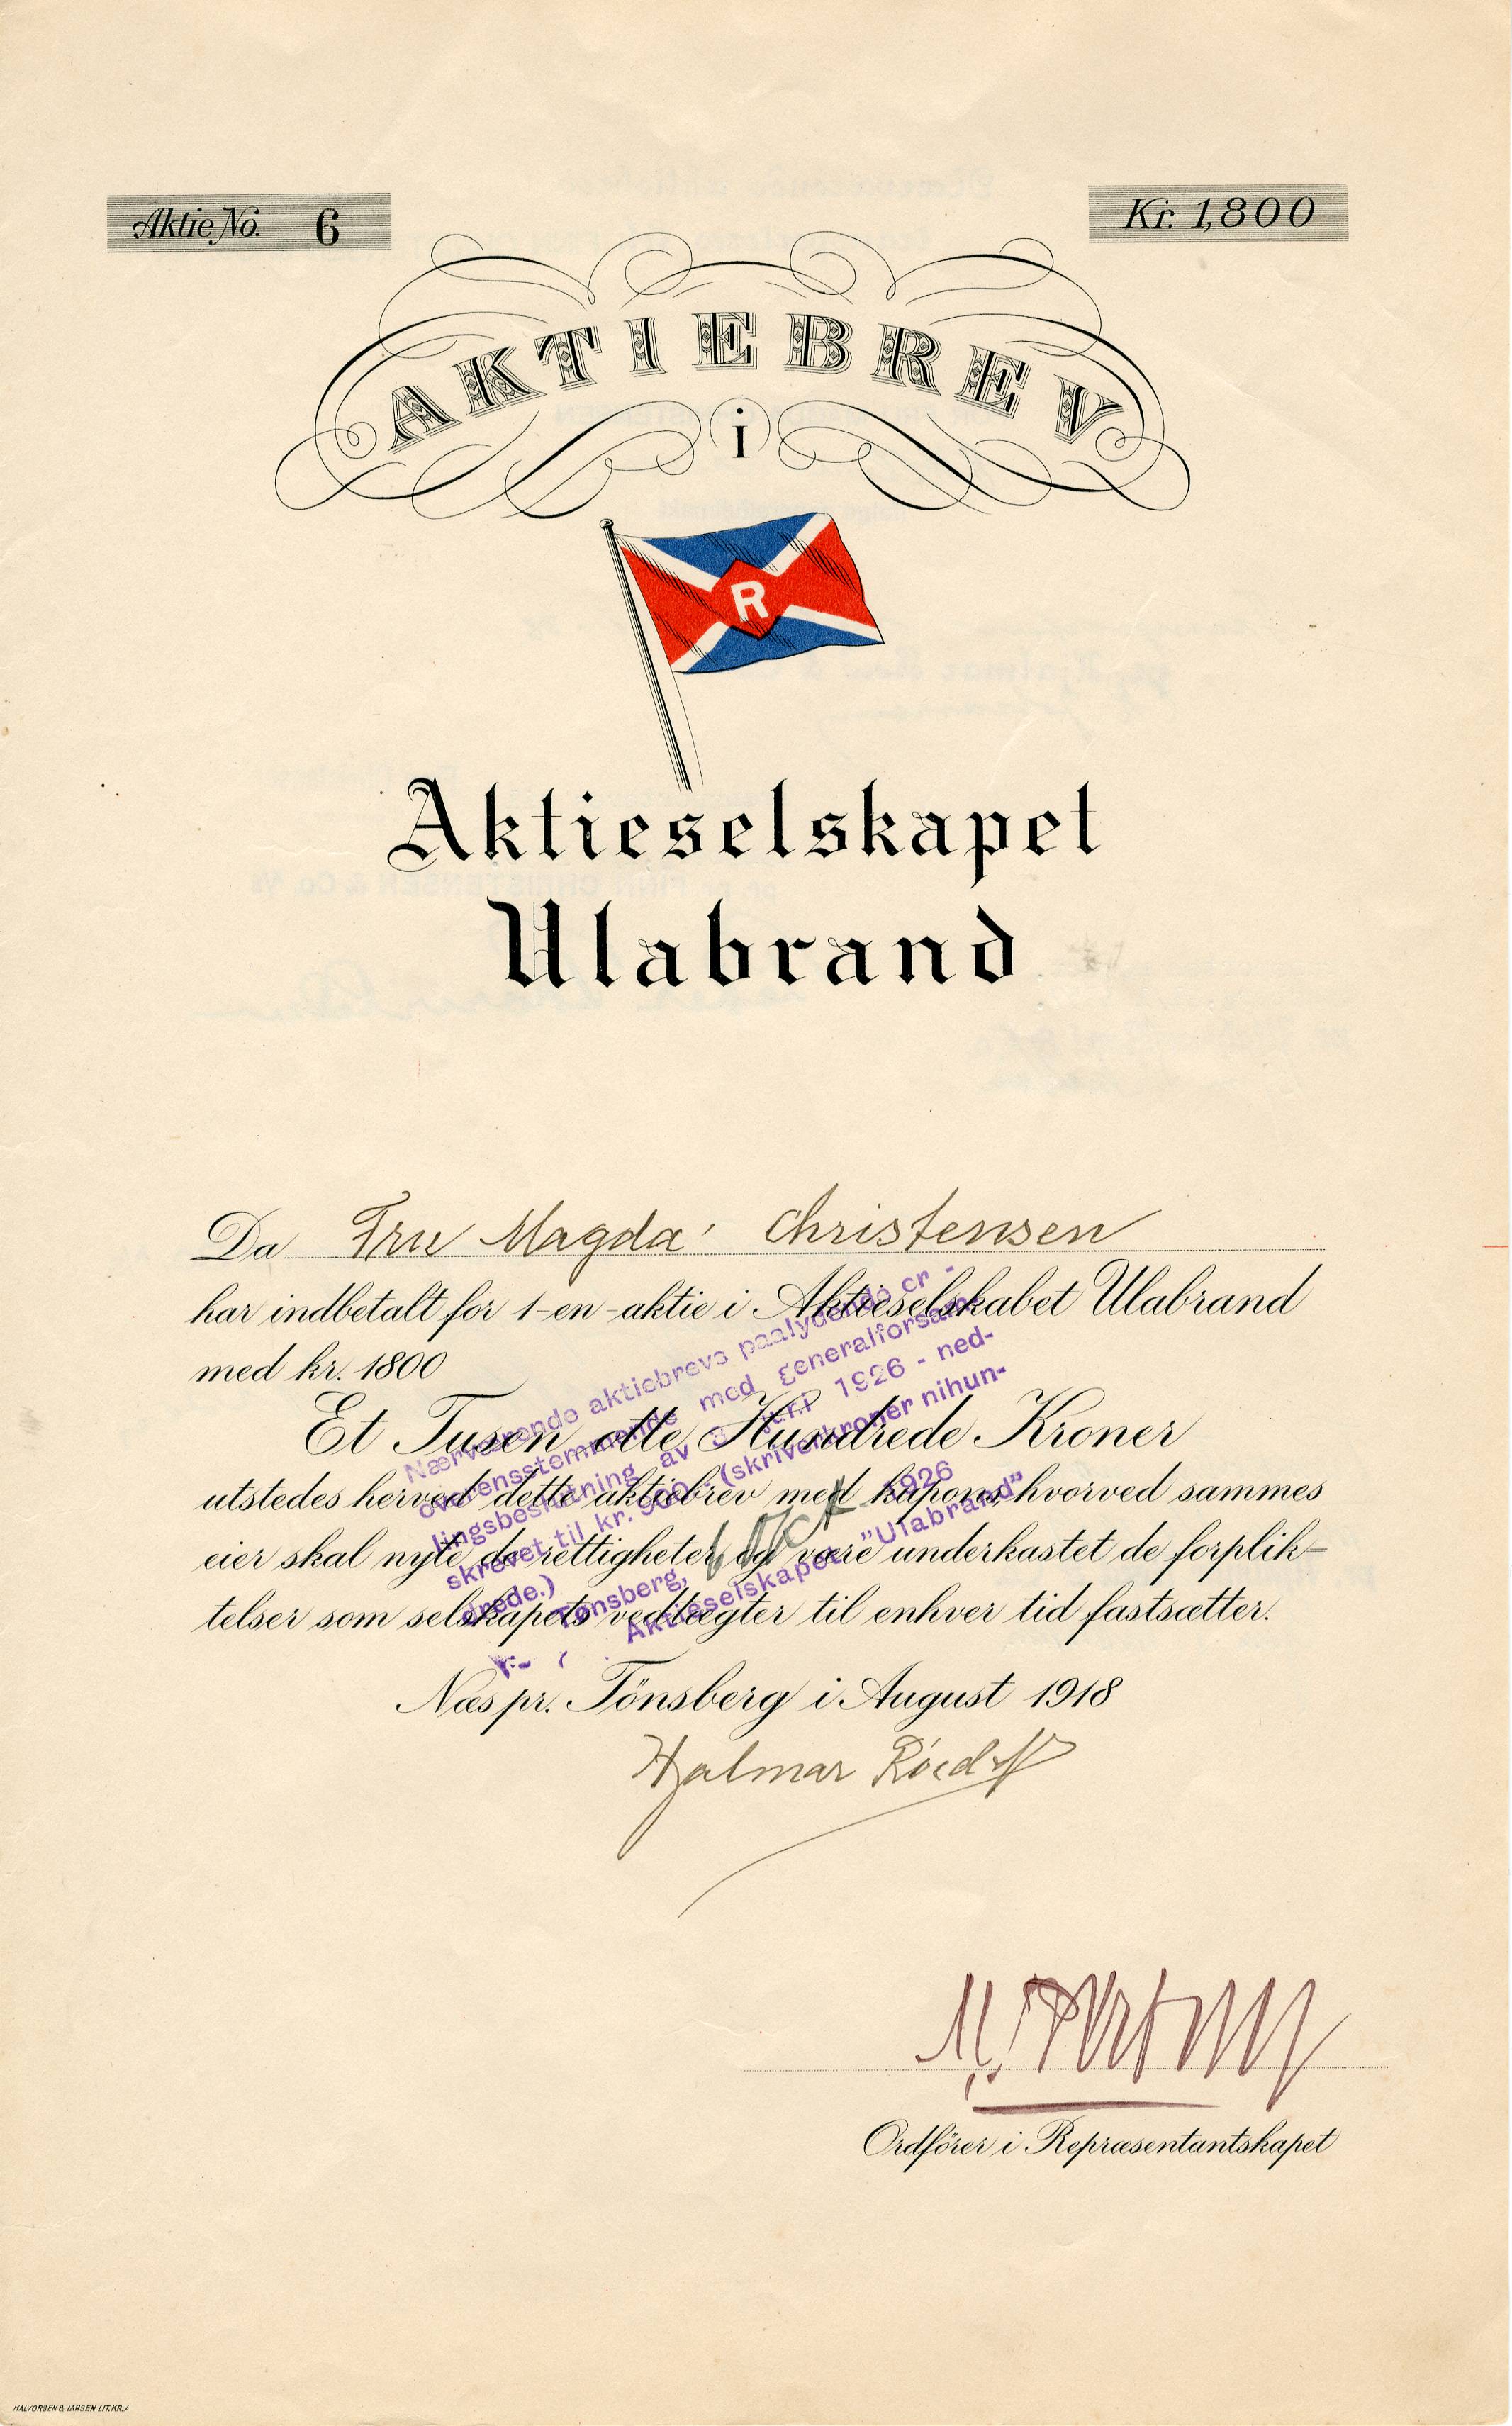 Aktie No. 6
Kr. 1,800
AKTIEBREV
i
R
Aktieselskapet
Ulabrand
Da Fru Magda Christensen
har indbetalt for 1-en-aktie i Aktieselskabet Ulabrand
med kr. 1800
Et Tusen otte Hundrede Kroner
utstedes herved dette aktiebrev med kupons, hvorved sammes
eier skal nyte de rettigheter og være underkastet de forplik-
telser som selskapets vedtægter til enhver tid fastsætter.
Nærværende aktiebrevs paalydende er -
overensstemmende med generalforsam-
lingsbeslutning av 1926 - ned-
skrevet til kr. 900.- (skriver kroner nihun-
drede.)
Tønsberg, 1926
Aktieselskapet "Ulabrand"
Næs pr. Tönsberg i August 1918
Hjalmar Röed
Ordförer i Repræsentantskapet
HALVORSEN & LARSEN LIT. KR.A